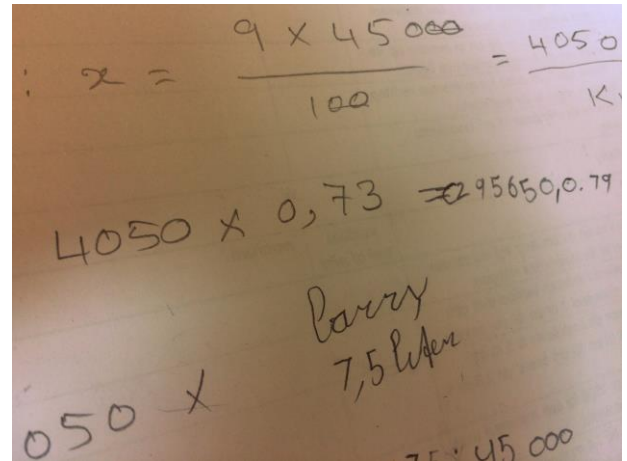 : x = 9 x 45000 / 100 = 4050
4050 x 0,73 = 295650,0.79
Larry
7,5 liter
050 x
75 : 45 000